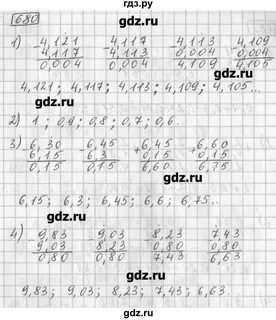 гдз.ру
680
гдз.ру
1) - 4,121 - 4,117 - 4,113 - 4,109
4,117 4,113 0,004 0,004
0,004 0,004 4,109 4,105
4,121; 4,117; 4,113; 4,109; 4,105...
gdz.ru
gdz.ru
2) 1; 0,9; 0,8; 0,7; 0,6...
3) 6,30 - 6,45 + 6,45 + 6,60
6,15 6,3 0,15 0,15
0,15 0,15 6,60 6,75
gdz.ru
gdz.ru
6,15; 6,3; 6,45; 6,6; 6,75...
gdz.ru
4) 9,83 9,03 8,23 7,43
9,03 8,23 0,80 0,80
0,80 0,80 7,43 6,63
gdz.ru
gdz.ru
9,83; 9,03; 8,23; 7,43; 6,63...
gdz.ru